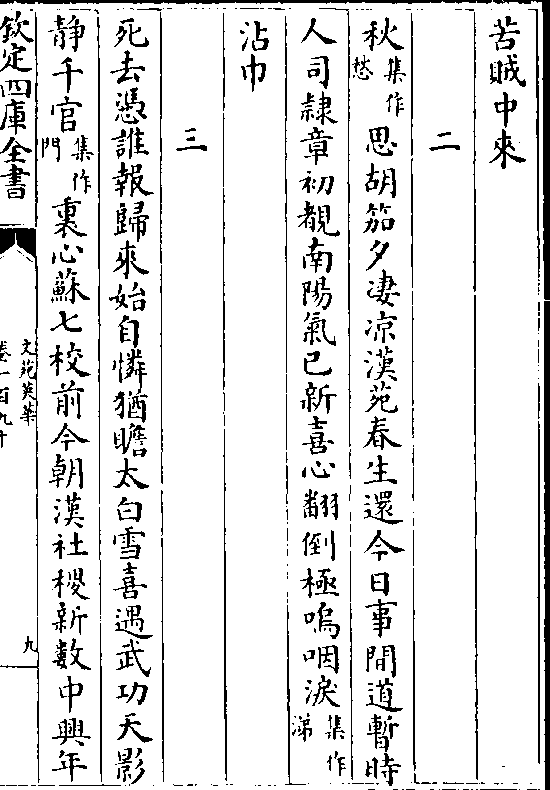 苦賊中來
二
秋集作愁思胡笳夕凄凉漢苑春生還今日事間道暫時
人司隸章初覩南陽氣已新喜心翻倒極嗚咽淚集作涕
沾巾
三
死去憑誰報歸來始自憐猶瞻太白雪喜遇武功天影
静千官集作門裏心蘇七校前今朝漢社稷新數中興年
欽定四庫全書
文苑英華
卷一百九十
九